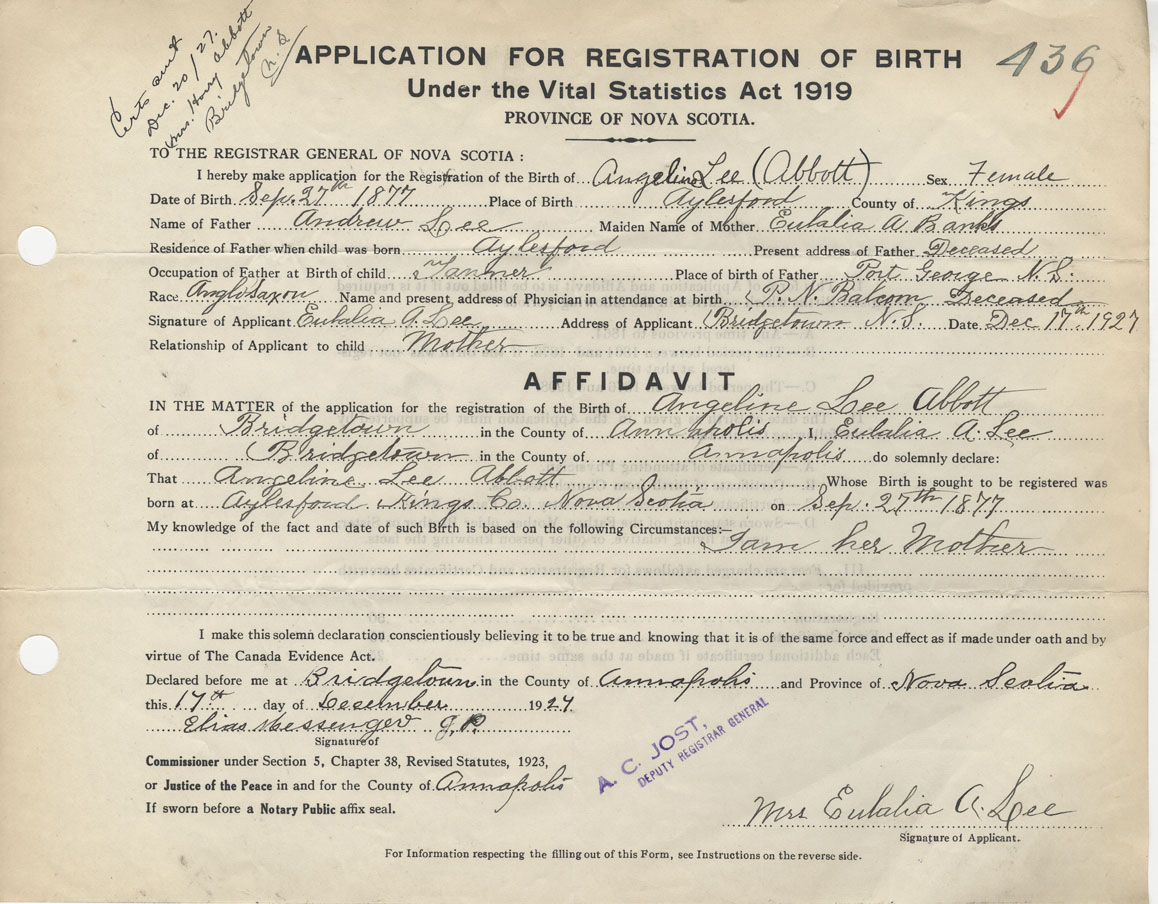 Certs sent
Dec. 20/27.
Mrs. Harry Abbott
Bridgetown
N.S.
APPLICATION FOR REGISTRATION OF BIRTH
436
Under the Vital Statistics Act 1919
PROVINCE OF NOVA SCOTIA.
TO THE REGISTRAR GENERAL OF NOVA SCOTIA :
I hereby make application for the Registration of the Birth of Angeline Lee (Abbott) Sex Female
Date of Birth Sep. 27th 1877 Place of Birth Aylesford County of Kings
Name of Father Andrew Lee Maiden Name of Mother Eulalia A Banks
Residence of Father when child was born Aylesford Present address of Father Deceased
Occupation of Father at Birth of child Tanner Place of birth of Father Port George N.S.
Race Anglo Saxon Name and present address of Physician in attendance at birth P. N. Balcom Deceased
Signature of Applicant Eulalia A. Lee Address of Applicant Bridgetown N.S. Date Dec 17th 1927
Relationship of Applicant to child Mother
AFFIDAVIT
IN THE MATTER of the application for the registration of the Birth of Angeline Lee Abbott
of Bridgetown in the County of Annapolis I, Eulalia A. Lee
of Bridgetown in the County of Annapolis do solemnly declare:
That Angeline Lee Abbott Whose Birth is sought to be registered was
born at Aylesford Kings Co. Nova Scotia on Sep. 27th 1877
My knowledge of the fact and date of such Birth is based on the following Circumstances:— I am her Mother
I make this solemn declaration conscientiously believing it to be true and knowing that it is of the same force and effect as if made under oath and by
virtue of The Canada Evidence Act.
Declared before me at Bridgetown in the County of Annapolis and Province of Nova Scotia
this 17th day of December 1927
Elias Messenger J.P.
Signature of
Commissioner under Section 5, Chapter 38, Revised Statutes, 1923,
A. C. JOST,
DEPUTY REGISTRAR GENERAL
or Justice of the Peace in and for the County of Annapolis
If sworn before a Notary Public affix seal.
Mrs Eulalia A. Lee
Signature of Applicant.
For Information respecting the filling out of this Form, see Instructions on the reverse side.